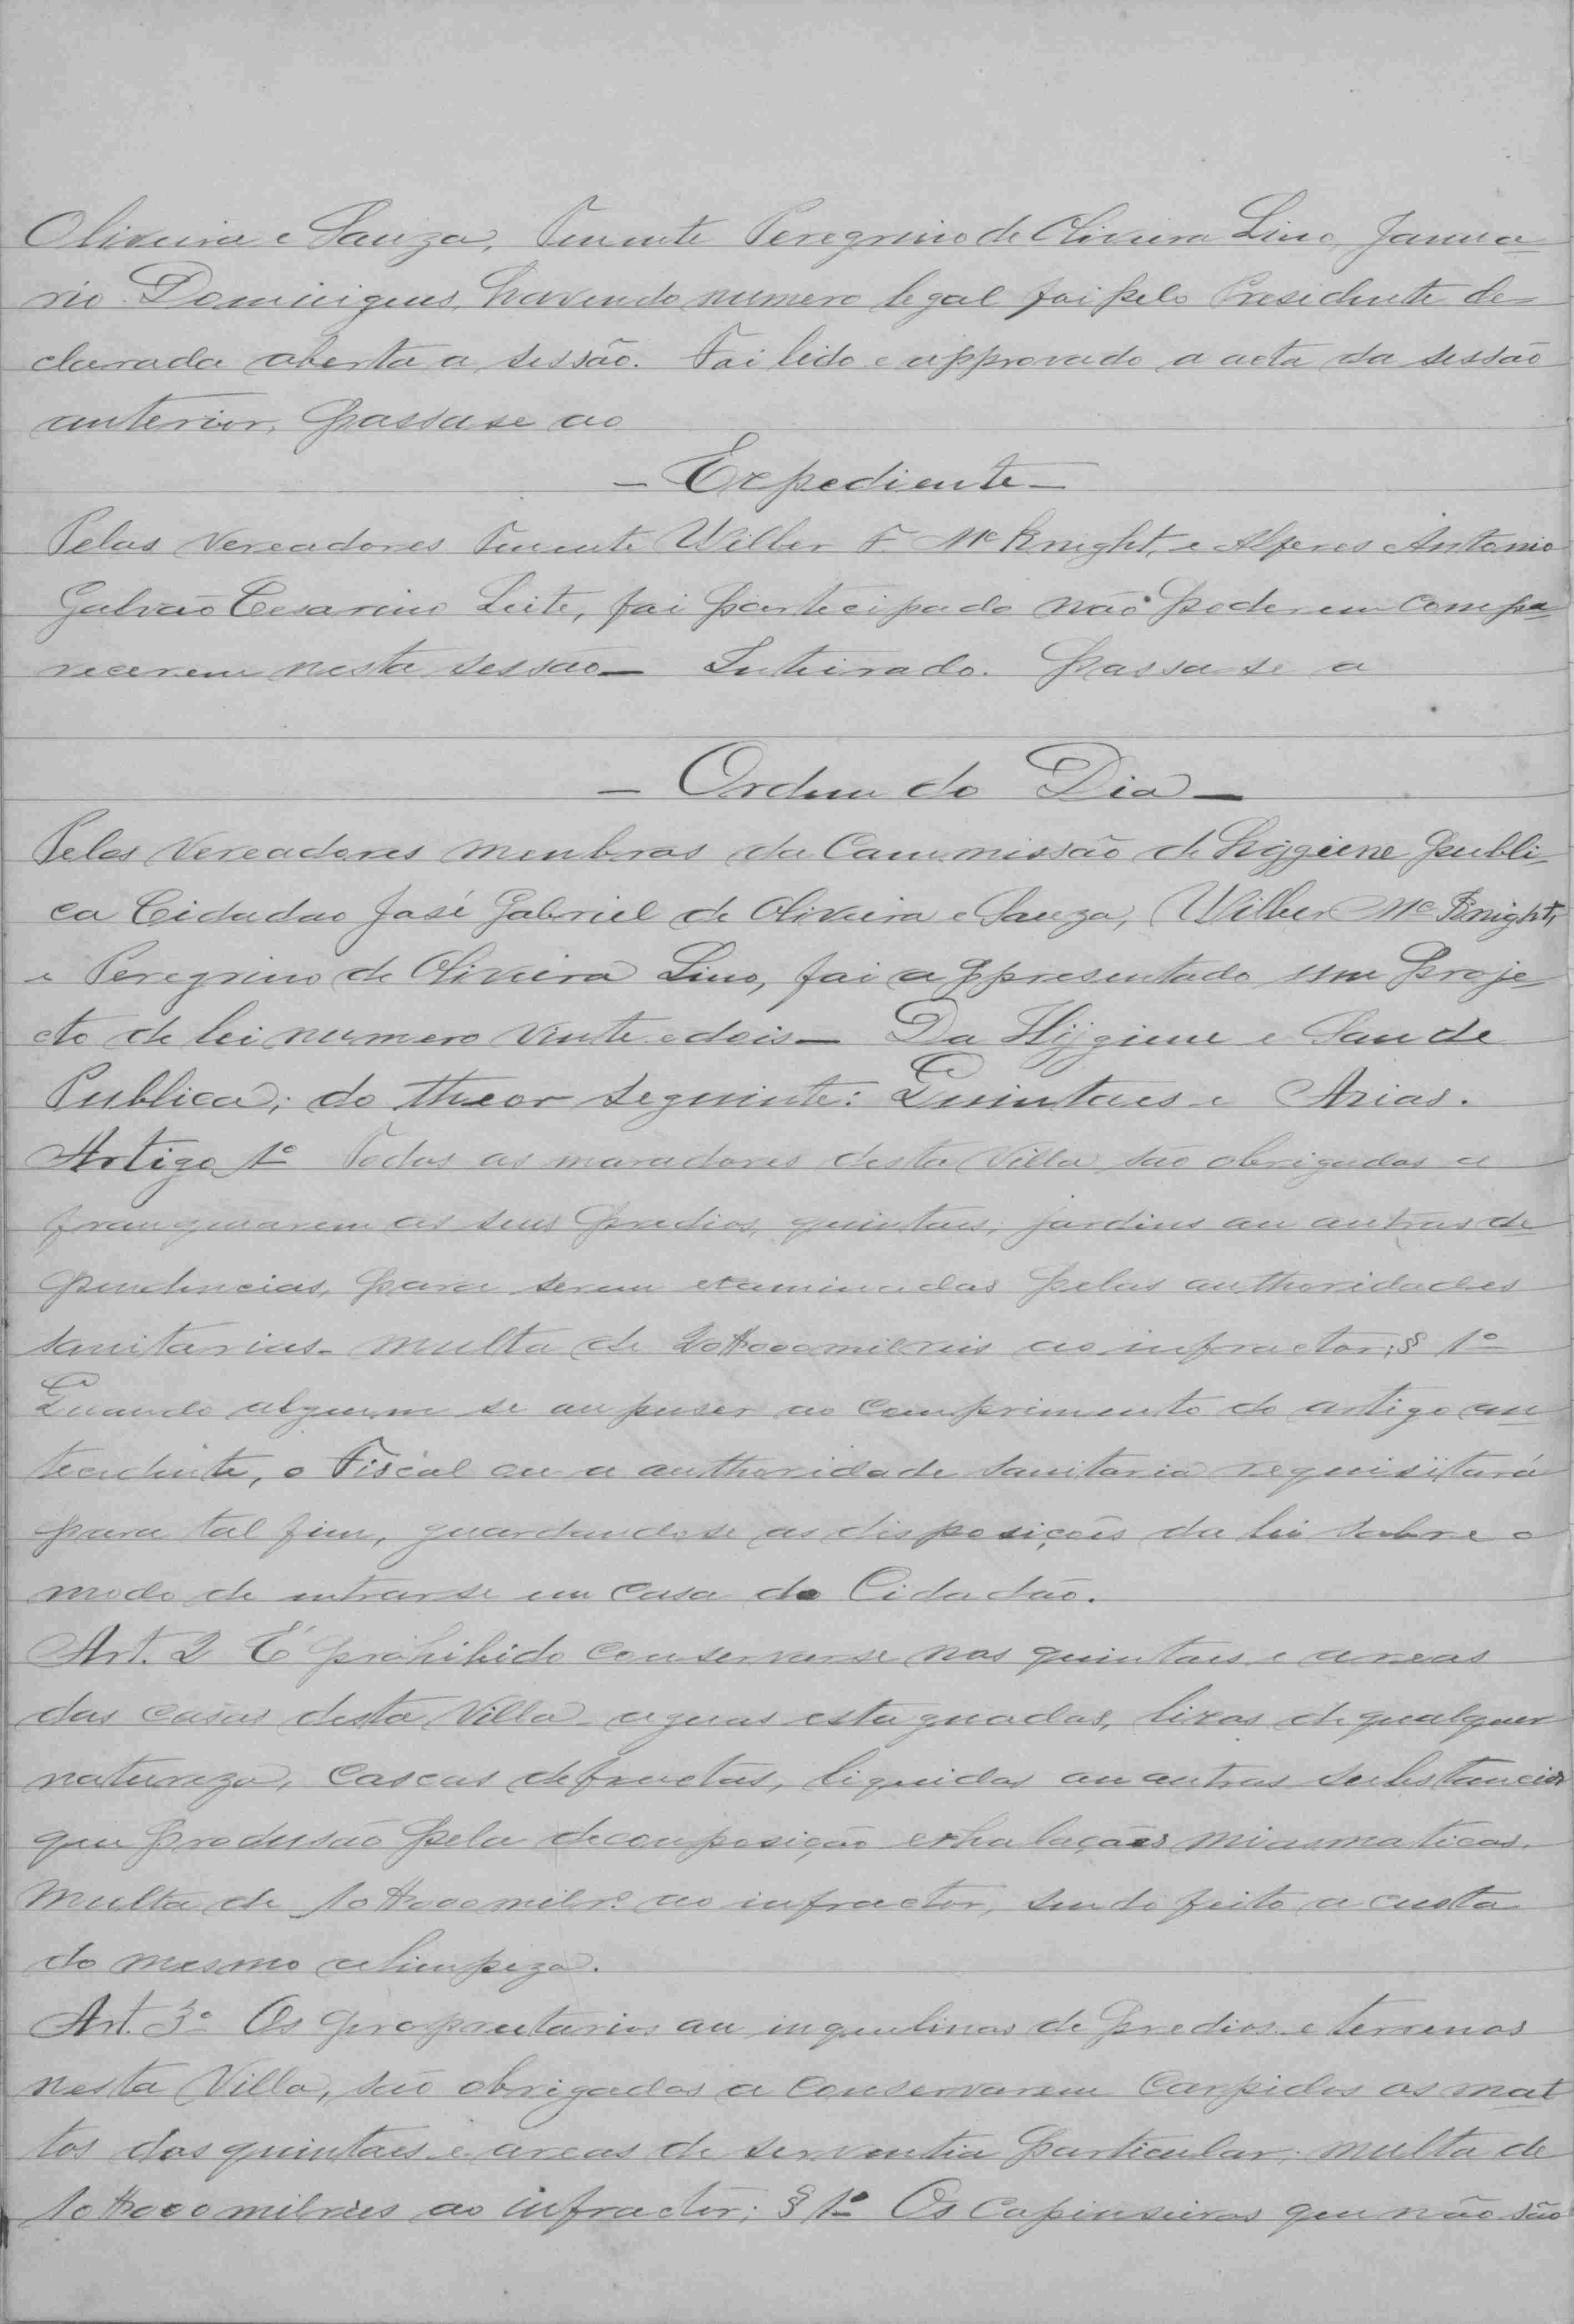 Oliveira e Souza, Tenente Peregrino de Oliveira Lino, Janua
rio Domingues, havendo numero legal foi pelo Presidente de=
clarada aberta a sessão. Foi lido e approvado a acta da sessão
anterior, passase ao
- Expediente -
Pelos Vereadores Tenente Wilber F. McKnight, e Alferes Antonio
Galvão Cesarino Leite, foi partecipado não poderem compa
recerem nesta sessão - Inteirado. Passa se a
- Ordem do Dia -
Pelos Vereadores menbros da Commissão de higgiene publi
ca Cidadao José Gabriel de Oliveira e Souza, Wilber McKnight,
e Peregrino de Oliveira Lino, foi appresentado um proje
cto de lei numero vinte e dois - Da Hijgiene e Saude
Publica; do theor seguinte: Quintaes e Arias.
Artigo 1º Todos os moradores desta Villa são obrigados a
franquearem os seus predios, quintaes, jardins ou outras de
pendencias, para serem examinadas pelas authoridades
sanitarias. multa de 20$000 milreis ao infractor; § 1º
Quando alguem se oupuser ao comprimento do artigo an
tecedente, o Fiscal ou a authoridade sanitaria requisitará
para tal fim, guardandose as disposições da lei sobre o
modo de entrarse em casa do Cidadão.
Art. 2 É prohibido conservarse nos quintaes e areas
das casas desta Villa aguas estagnadas, lixos de qualquer
natureza, cascas de fructas, liquidos ou outras substancias
que produsão pela decomposição exhalações miasmaticas.
Multa de 10$000 milrs. ao infractor, sendo feito a custa
do mesmo a limpeza.
Art. 3º Os propreetarios ou inquelinos de predios e terrenos
nesta Villa, são obrigados a conservarem carpidos os mat
tos dos quintaes e areas de serventia particular. multa de
10$000 milreis ao infractor; § 1º Os capinseiros que não são